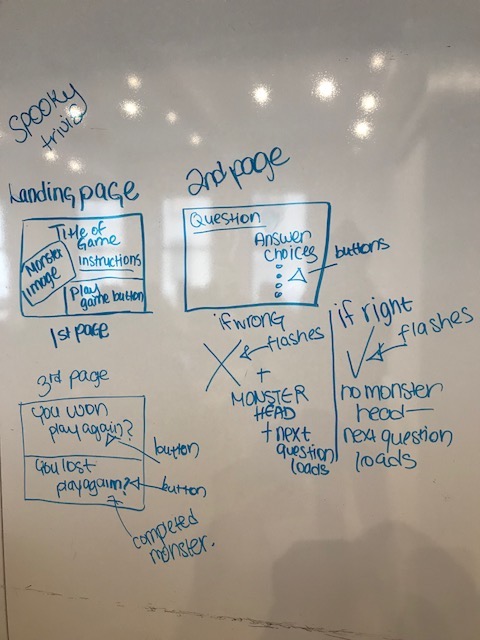 Spooky
trivia
Landing page
Title of
Game
Monster
Image
instructions
Play
game button
1st page
2nd page
Question
Answer
Choices
buttons
if wrong
flashes
+
MONSTER
HEAD
+ next
question
loads
if right
flashes
no monster
head—
next question
loads
3rd page
You won
play again?
button
You lost
play again?
button
completed
monster.